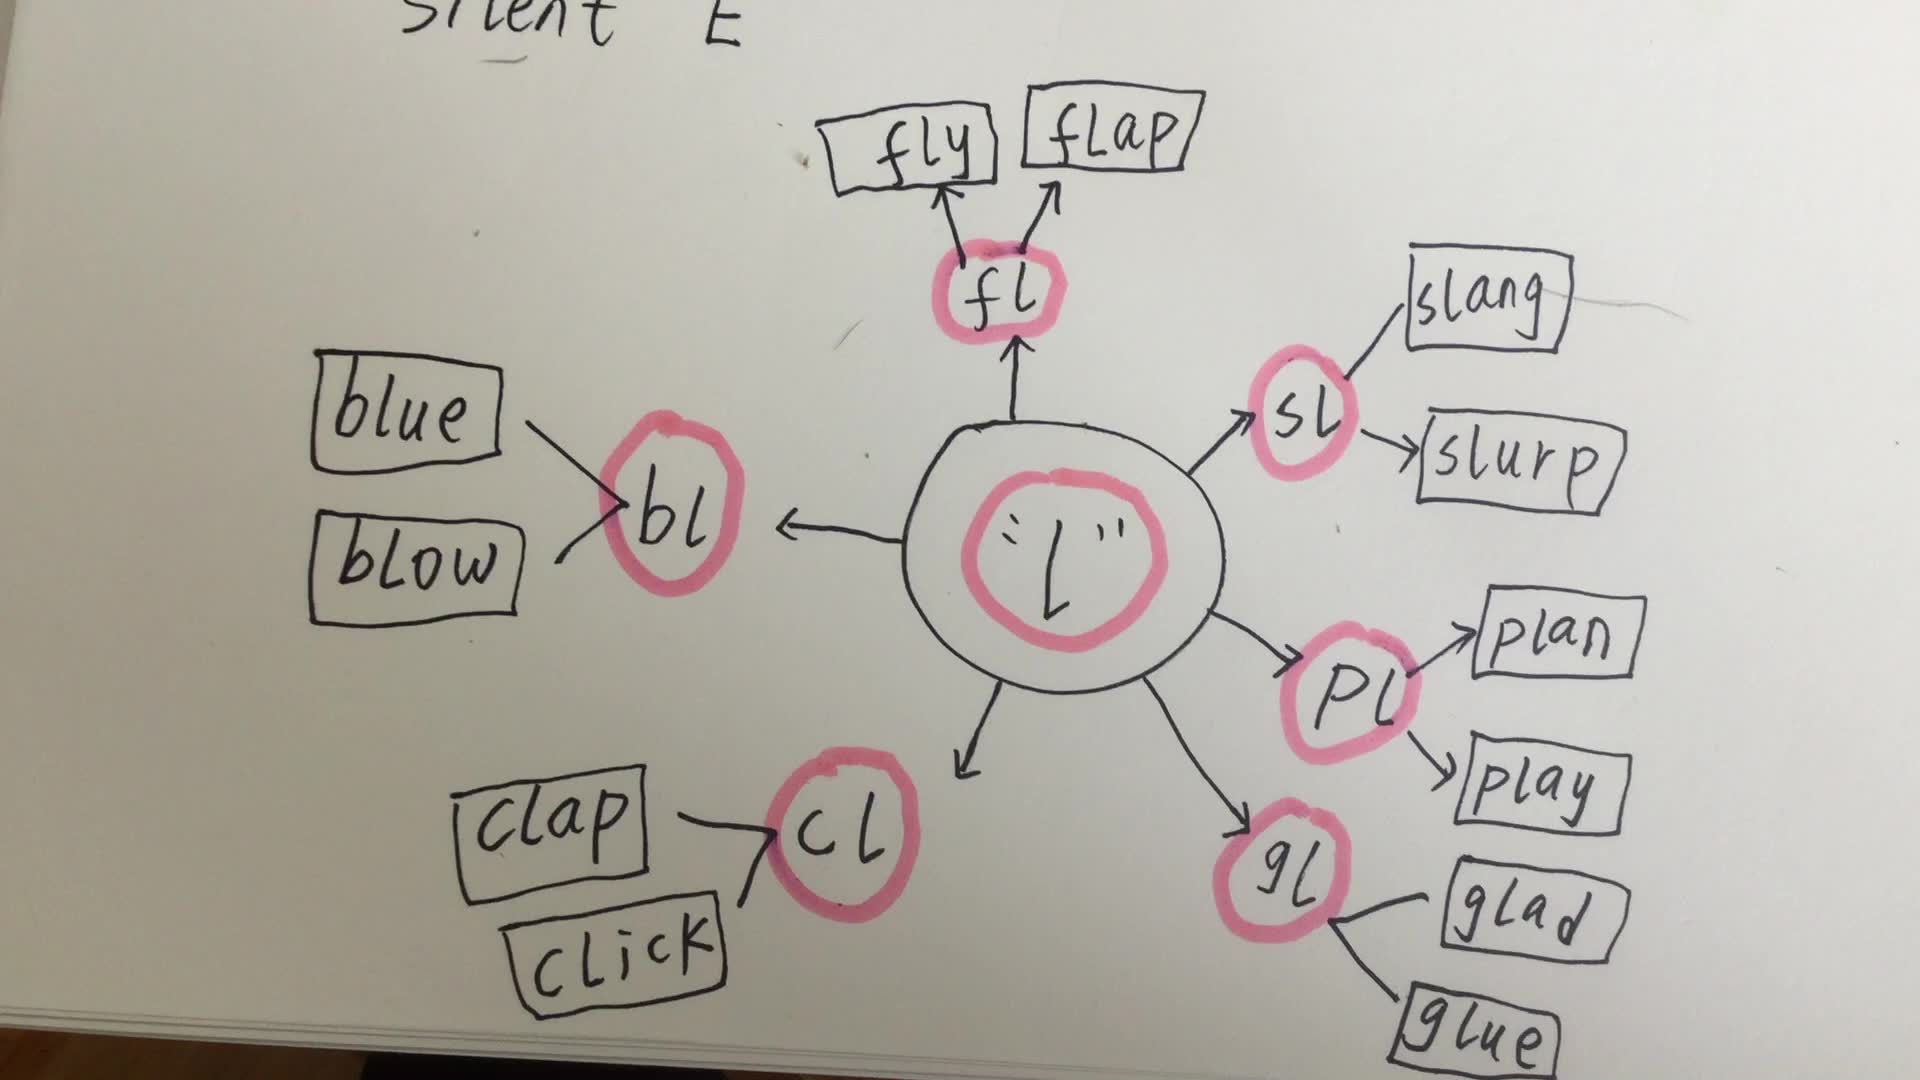 Silent E
fly
flap
fl
slang
sl
slurp
blue
bl
blow
"l"
plan
pl
play
clap
cl
click
gl
glad
glue